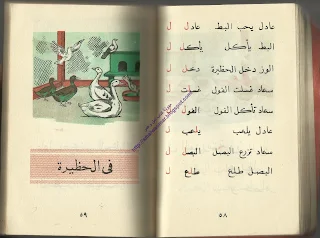 عادل يحب البط عادل ل
البط يأكل يأكل ل
الوز دخل الحظيرة دخل ل
سعاد غسلت الفول غسلت ل
سعاد تأكل الفول الفول ل
عادل يلعب يلعب ل
سعاد تزرع البصل البصل ل
البصل طلع طلع ل
٥٨
فى الحظيرة
٥٩